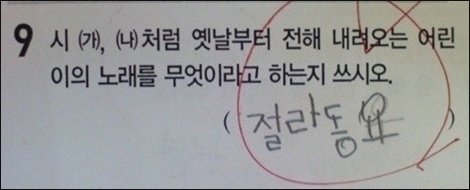 9 시 ㈎, ㈏처럼 옛날부터 전해 내려오는 어린
이의 노래를 무엇이라고 하는지 쓰시오.
( 절라동요 )